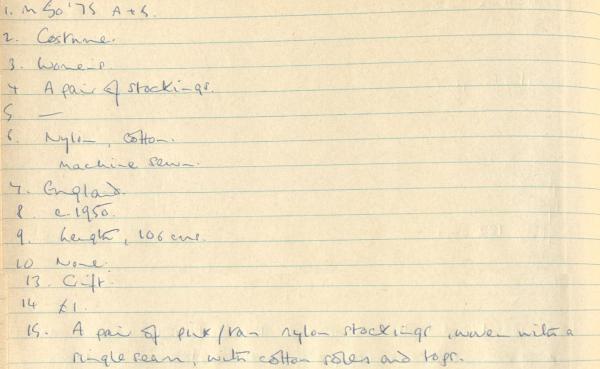 1. M 50 '75 A + S.
2. Costume.
3. Womens
4 A pair of stockings.
5 —
6. Nylon, cotton.
machine sewn.
7. England.
8. c.1950.
9. Length, 106 cms.
10 None.
13. Gift.
14 £1.
15. A pair of pink/tan nylon stockings, woven with a
single seam, with cotton soles and tops.